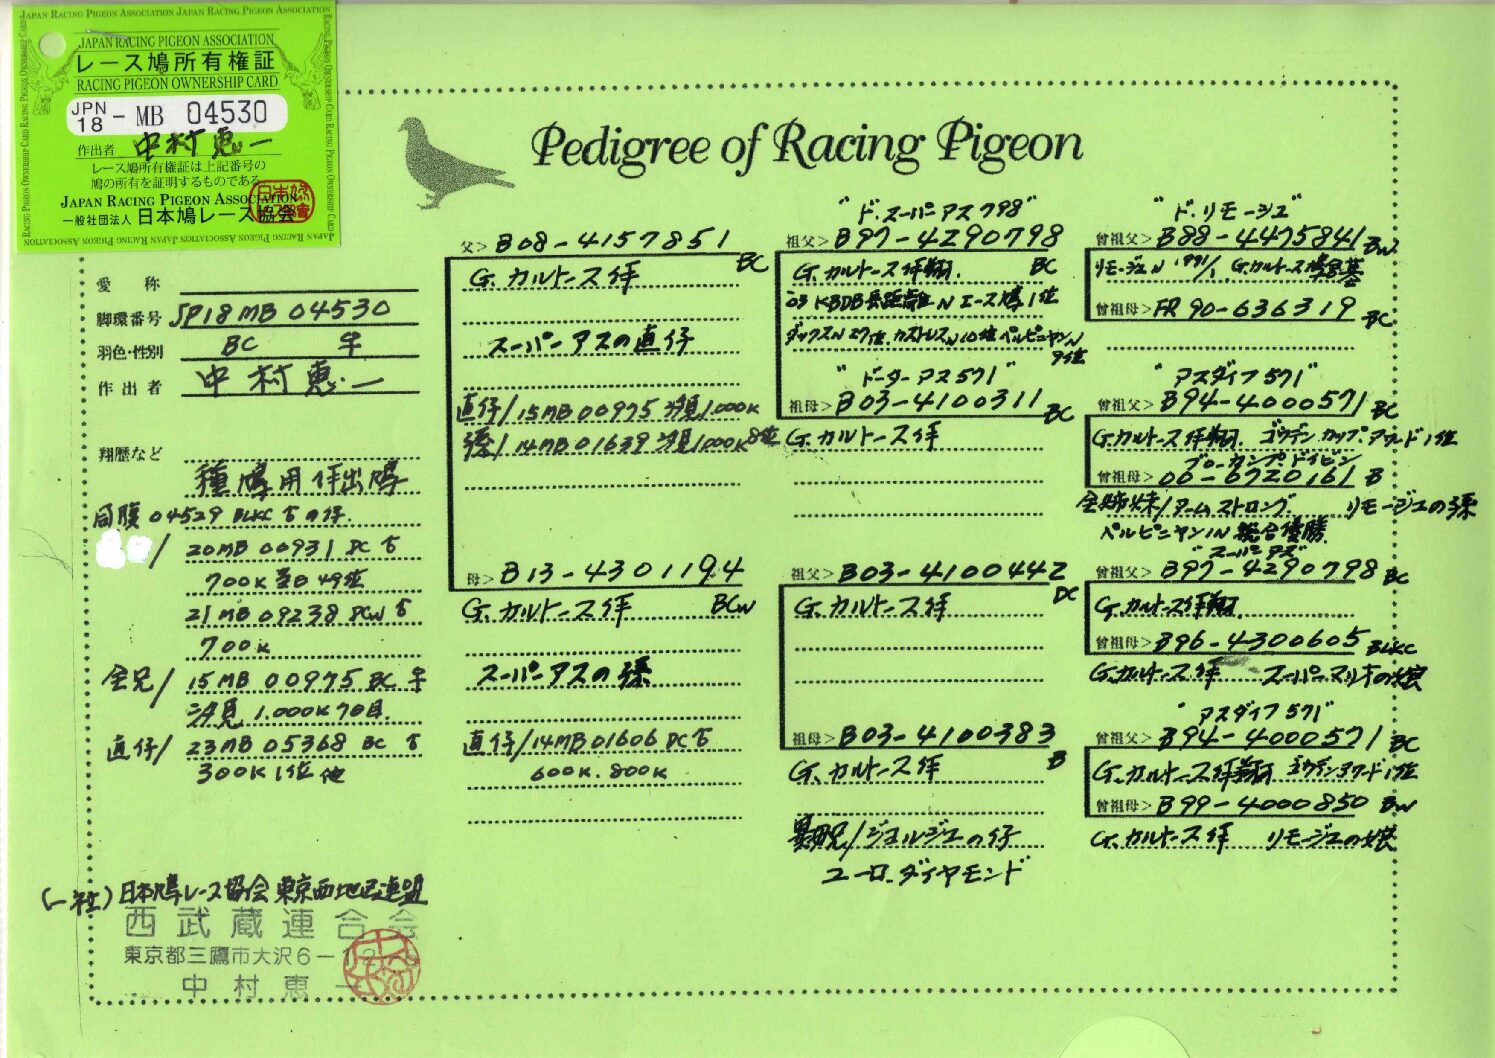 JAPAN RACING PIGEON ASSOCIATION JAPAN RACING PIGEON ASSOCIATION
JAPAN RACING PIGEON ASSOCIATION
レース鳩所有権証
RACING PIGEON OWNERSHIP CARD
JPN 18 - MB 04530
作出者 中村恵一
レース鳩所有権証は上記番号の
鳩の所有を証明するものである
JAPAN RACING PIGEON ASSOCIATION
一般社団法人 日本鳩レース協会
Pedigree of Racing Pigeon
愛称
脚環番号 JP18MB 04530
羽色・性別 BC ♀
作出者 中村恵一
翔歴など
種鳩用作出鳩
同腹 04529 BLKC ♂の仔.
20MB 00931 DC ♂
700K 総合 49位
21MB 09238 DCW ♂
700K
全兄/ 15MB 00975 BC ♀
汐見 1.000K 7日目.
直仔/ 23MB 05368 BC ♂
300K 1位 他
(一社)日本鳩レース協会 東京西地区連盟
西武蔵連合会
東京都三鷹市大沢6-12
中村恵一
父> B08-4157851
BC
G.カルトース作
スーパーアスの直仔
直仔/15MB00975 汐見1.000K
孫/14MB01639 汐見1.000K 8位
母> B13-4301194
BCW
G.カルトース作
スーパーアスの孫
直仔/14MB01606 DC♂
600K. 800K
"ド.スーパーアス798"
祖父> B97-4290798
BC
G.カルトース作翔.
'03 KBDB長距離N エース鳩1位
ダックスN27位.カストレスN10位 ペルピニャンN
9位
"ドーターアス571"
祖母> B03-4100311
BC
G.カルトース作
祖父> B03-4100442
DC
G.カルトース作
祖母> B03-4100383
B
G.カルトース作
異母兄/ジョルジュの仔
ユーロ.ダイヤモンド
"ド.リモージュ"
曾祖父> B88-4475841 BW
リモージュN 1991/1 G.カルトース鳩舎基
曾祖母> FR 90-636319 BC
"アスダイフ571"
曾祖父> B94-4000571 BC
G.カルトース作翔. ゴウデンカップ.アワード1位
ブローカンプ.ドイビン
曾祖母> 00-6720161 B
全姉妹/アームストロング. リモージュの孫
ペルピニャンIN 総合優勝.
"スーパーアス"
曾祖父> B97-4290798 BC
G.カルトース作翔
曾祖母> B96-4300605 BLKC
G.カルトース作 スーパーマルオの娘
"アスダイフ571"
曾祖父> B94-4000571 BC
G.カルトース作翔 ゴウデンアワード1位
曾祖母> B99-4000850 BW
G.カルトース作 リモージュの娘